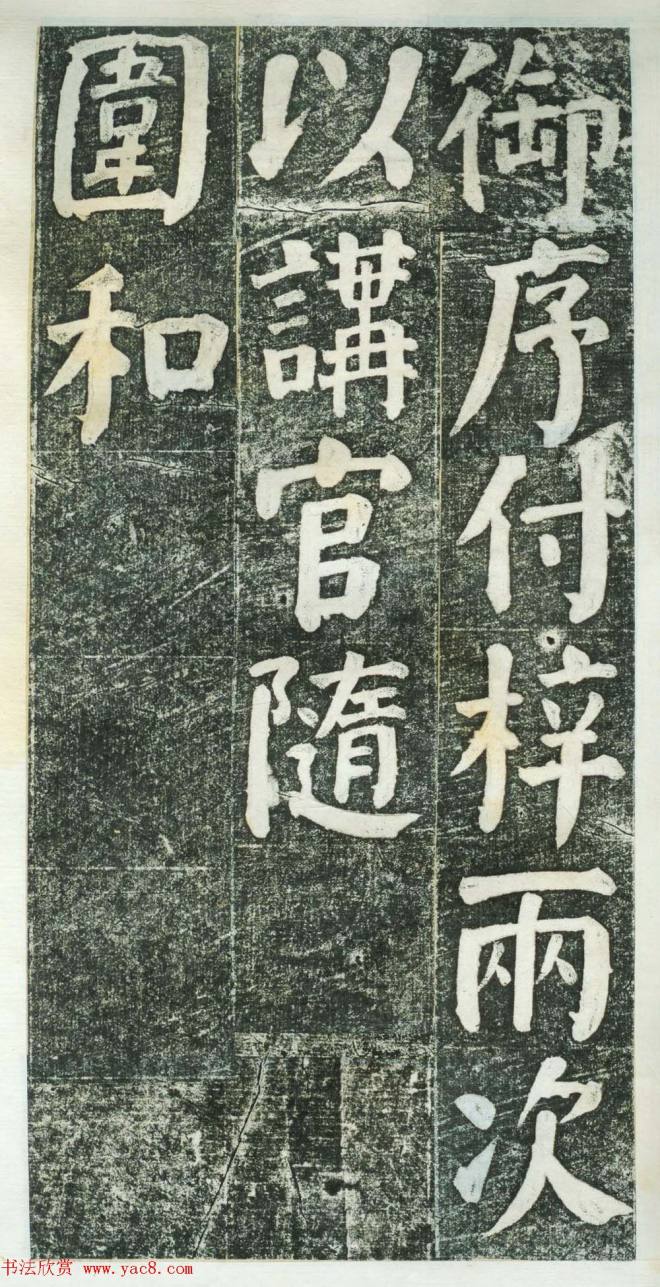 御序付梓兩次
以講官隨
圍和
书法欣赏 www.yac8.com